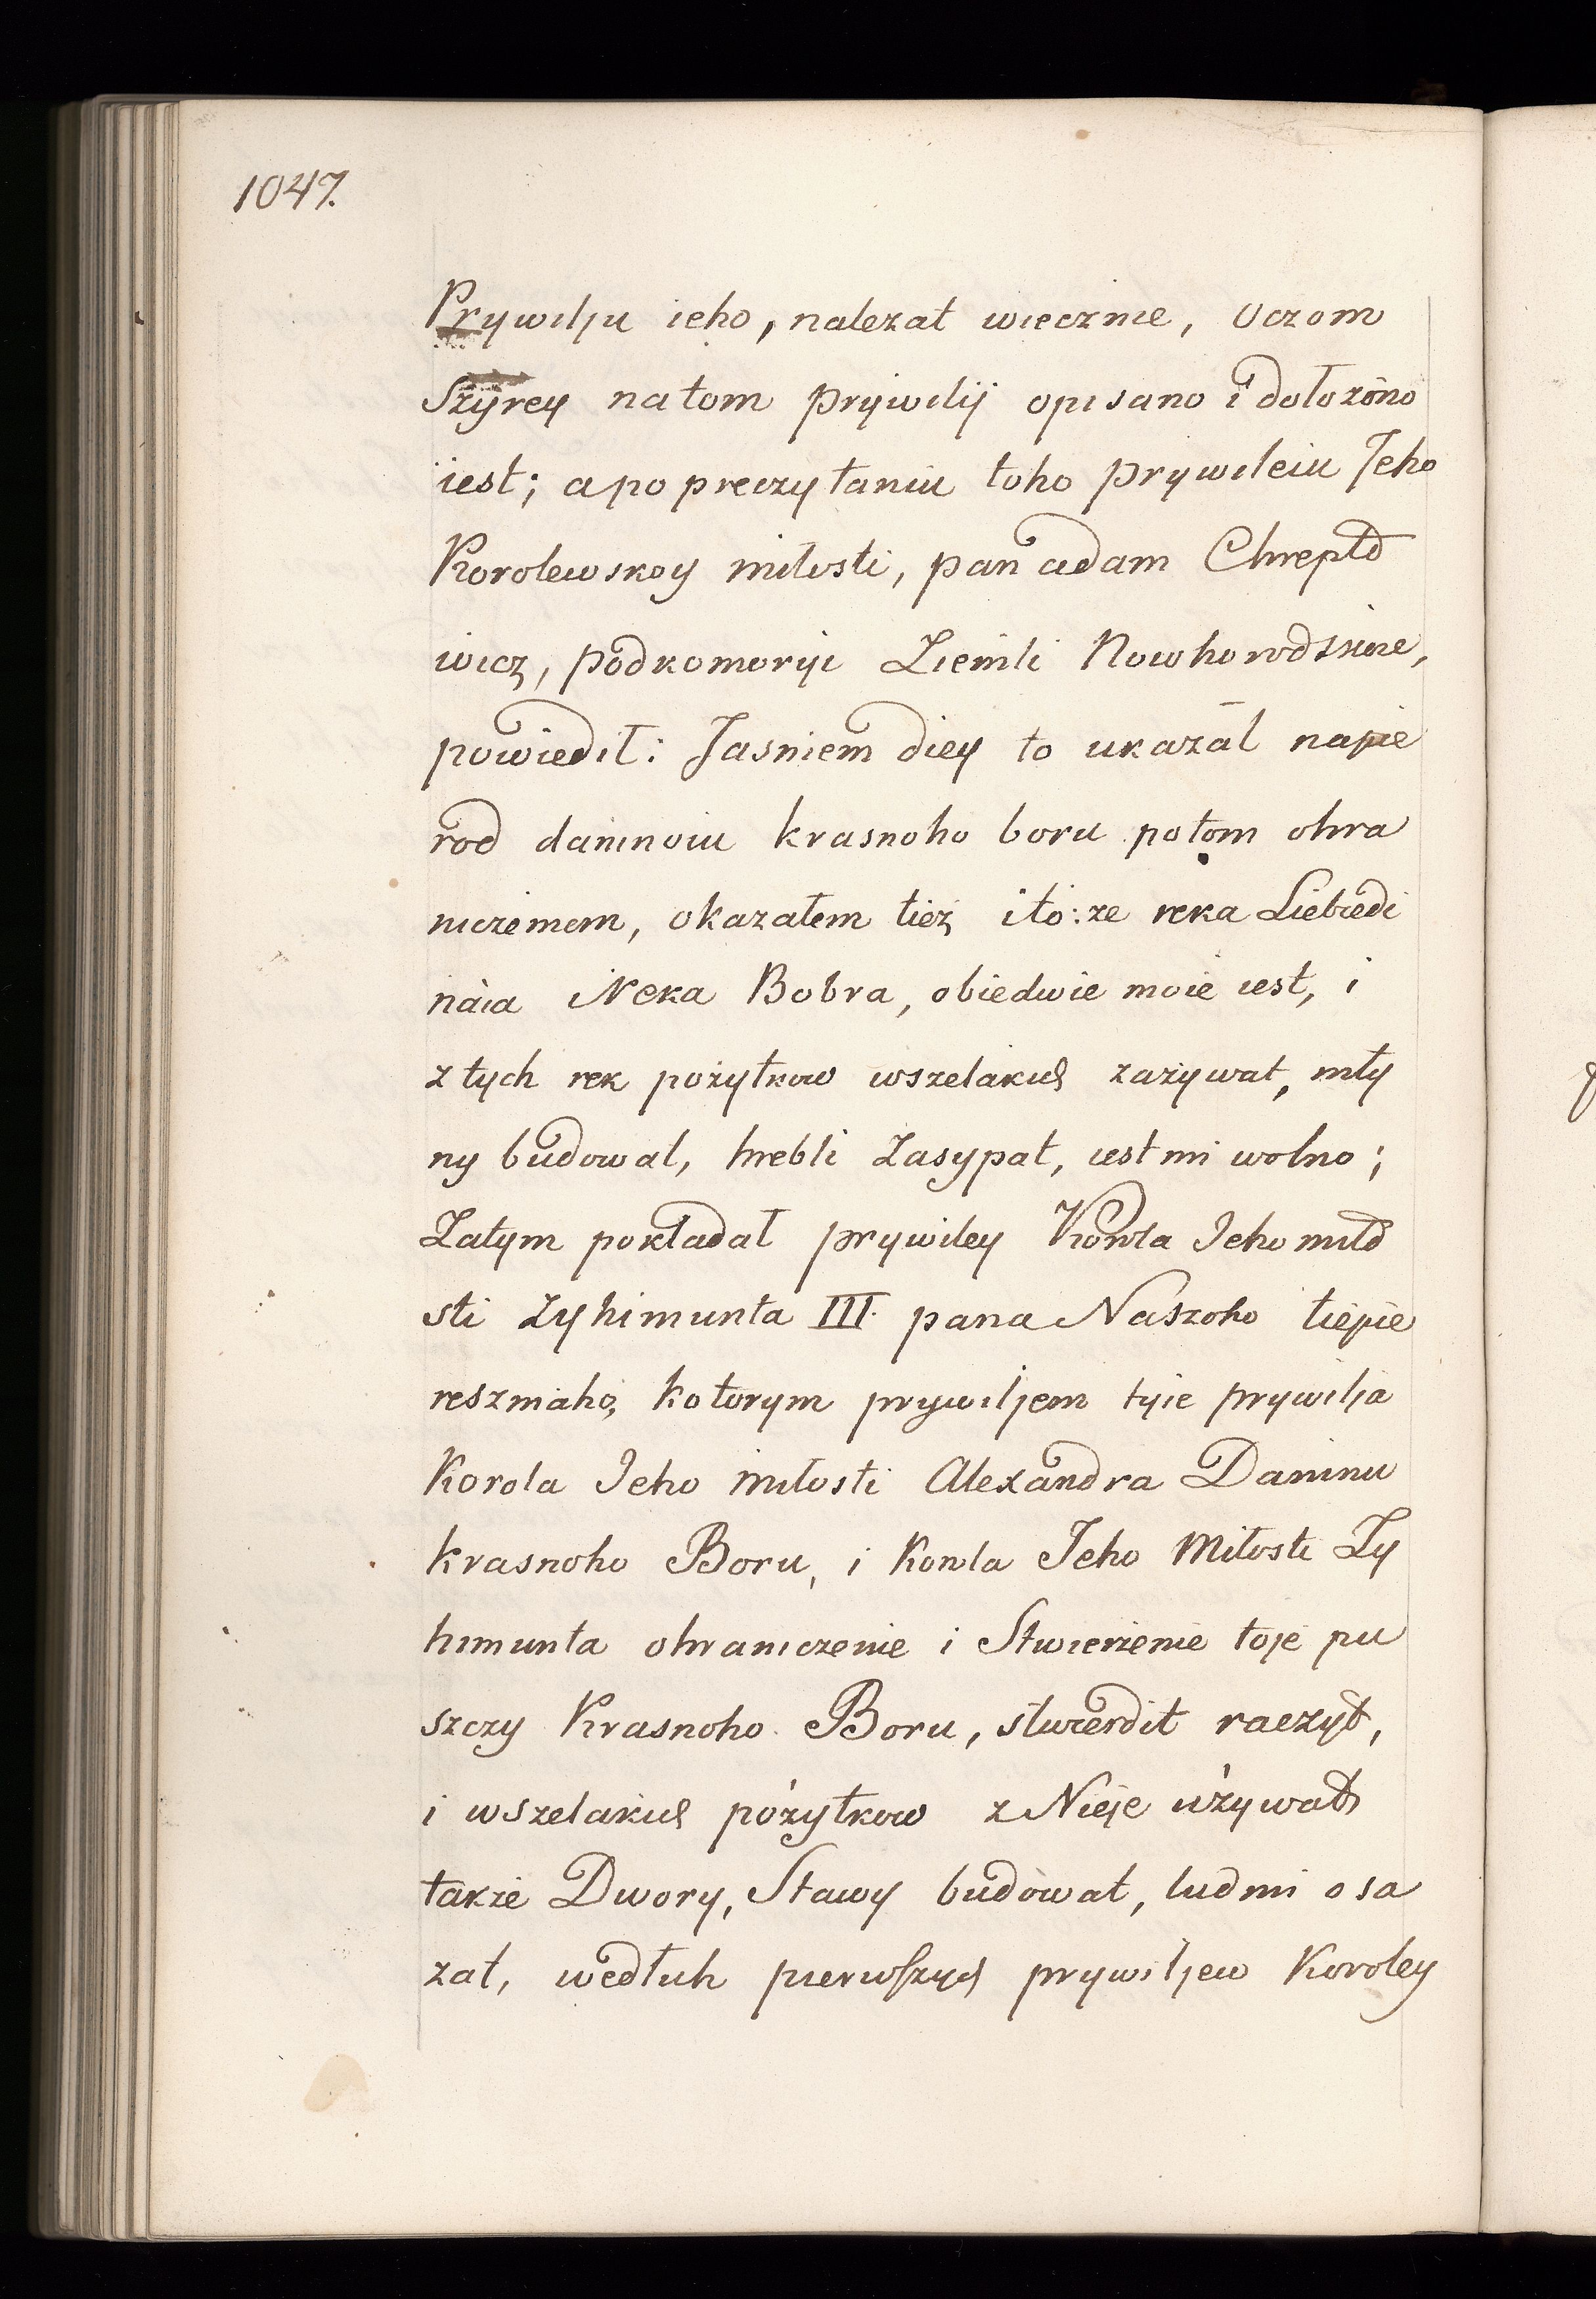 1047.
Prywilju ieho, nalezat wiecznie, Oczom
Szyrey natom prywilij opisano i dołożono
iest; apo preczytaniu toho prywileiu Jeho
Korolewskoy miłosti, pan adam Chrepto
wicz, podkomoryi Ziemli Nowhorodskoie,
powiedił: Jasniem diey to ukazał napie
rod daninoiu krasnoho boru potom ohra
niczeniem, okazałem tież ito: ze reka Liebiedi
naia i Reka Bobra, obiedwie moie iest, i
z tych rek pożytkow wszelakich zażywat, mły
ny budowat, hrebli zasypat, iest mi wolno;
Zatym pokładał prywiley Korola Jeho miło
sti Zyhimunta III. pana Naszoho tiepie
reszniaho, kotorym prywiljem tyie prywilja
Korola Jeho miłosti Alexandra Daninu
krasnoho Boru, i Korola Jeho Miłosti Zy
himunta ohraniczenie i Stwierżenie toje pu
szczy Krasnoho Boru, stwierdit raczył,
i wszelakich pożytkow z Nieje używat
także Dwory, Stawy budowat, ludmi osa
zat, wedłuh pierwszych prywiljew Koroley